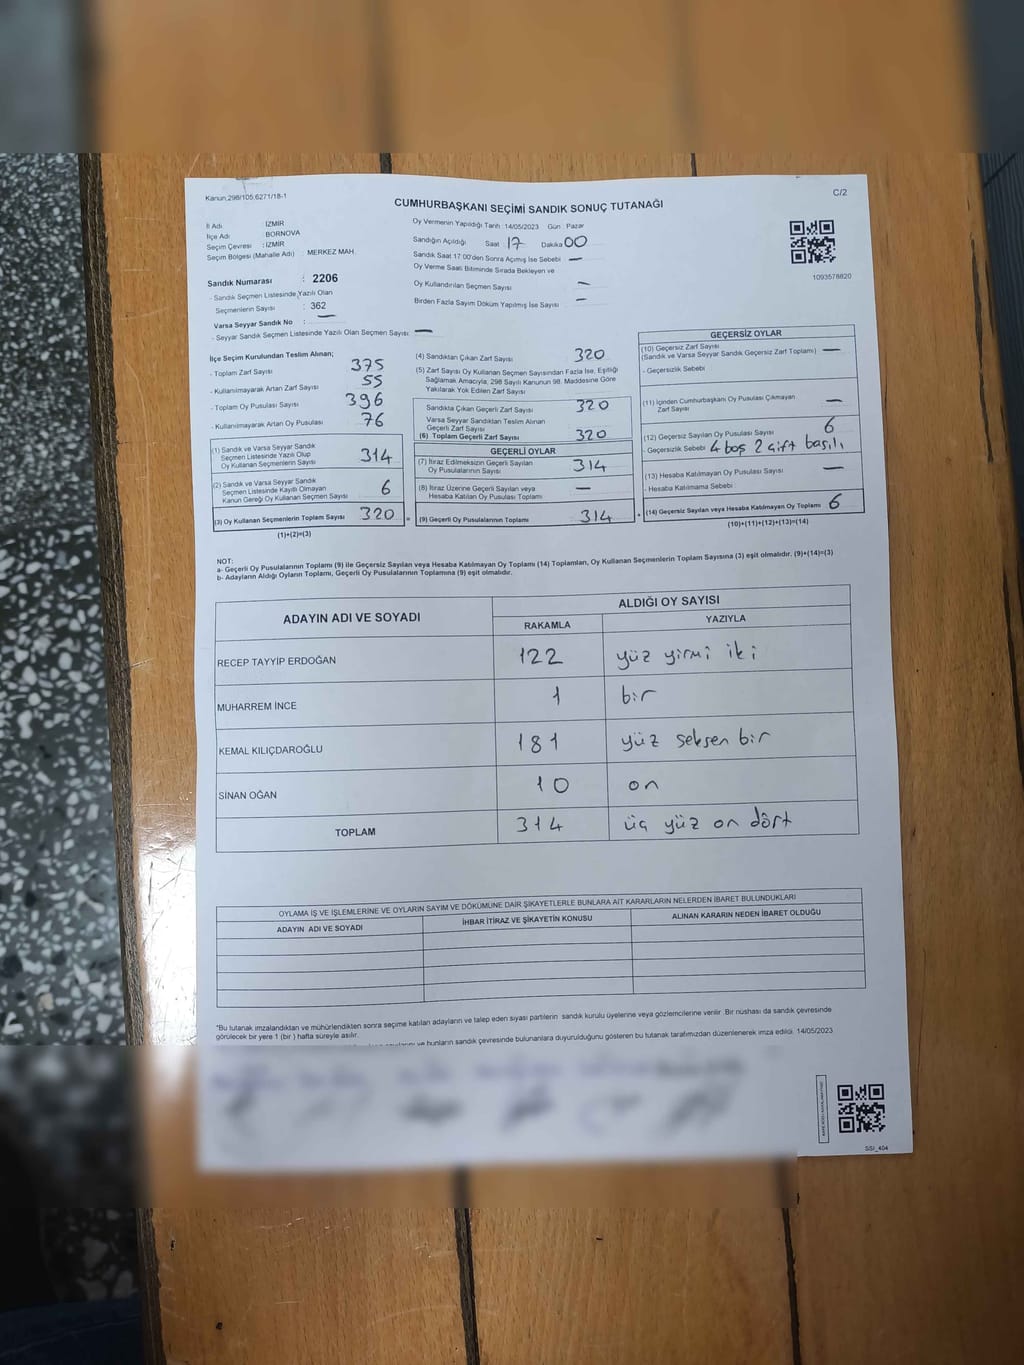 Kanun;298/105,6271/18-1
C/2
CUMHURBAŞKANI SEÇİMİ SANDIK SONUÇ TUTANAĞI
İl Adı : İZMİR
İlçe Adı : BORNOVA
Seçim Çevresi : İZMİR
Seçim Bölgesi (Mahalle Adı) : MERKEZ MAH.
Sandık Numarası : 2206
- Sandık Seçmen Listesinde Yazılı Olan
Seçmenlerin Sayısı : 362
Varsa Seyyar Sandık No : —
- Seyyar Sandık Seçmen Listesinde Yazılı Olan Seçmen Sayısı: —
Oy Vermenin Yapıldığı Tarih 14/05/2023 Gün Pazar
Sandığın Açıldığı Saat 17 Dakika 00
Sandık Saat 17:00'den Sonra Açımış İse Sebebi —
Oy Verme Saati Bitiminde Sırada Bekleyen ve
Oy Kullandırılan Seçmen Sayısı —
Birden Fazla Sayım Döküm Yapılmış İse Sayısı —
1093578820
İlçe Seçim Kurulundan Teslim Alınan;
- Toplam Zarf Sayısı 375
- Kullanılmayarak Artan Zarf Sayısı 55
- Toplam Oy Pusulası Sayısı 396
- Kullanılmayarak Artan Oy Pusulası 76
(1) Sandık ve Varsa Seyyar Sandık
Seçmen Listesinde Yazılı Olup
Oy Kullanan Seçmenlerin Sayısı 314
(2) Sandık ve Varsa Seyyar Sandık
Seçmen Listesinde Kayıtlı Olmayan
Kanun Gereği Oy Kullanan Seçmen Sayısı 6
(3) Oy Kullanan Seçmenlerin Toplam Sayısı 320
(1)+(2)=(3)
(4) Sandıktan Çıkan Zarf Sayısı 320
(5) Zarf Sayısı Oy Kullanan Seçmen Sayısından Fazla İse, Eşitliği
Sağlamak Amacıyla, 298 Sayılı Kanunun 98. Maddesine Göre
Yakılarak Yok Edilen Zarf Sayısı
Sandıkta Çıkan Geçerli Zarf Sayısı 320
Varsa Seyyar Sandıktan Teslim Alınan
Geçerli Zarf Sayısı
(6) Toplam Geçerli Zarf Sayısı 320
GEÇERLİ OYLAR
(7) İtiraz Edilmeksizin Geçerli Sayılan
Oy Pusulalarının Sayısı 314
(8) İtiraz Üzerine Geçerli Sayılan veya
Hesaba Katılan Oy Pusulası Toplamı —
(9) Geçerli Oy Pusulalarının Toplamı 314
GEÇERSİZ OYLAR
(10) Geçersiz Zarf Sayısı
(Sandık ve Varsa Seyyar Sandık Geçersiz Zarf Toplamı) —
- Geçersizlik Sebebi
(11) İçinden Cumhurbaşkanı Oy Pusulası Çıkmayan
Zarf Sayısı —
(12) Geçersiz Sayılan Oy Pusulası Sayısı 6
- Geçersizlik Sebebi 4 boş 2 çift basılı
(13) Hesaba Katılmayan Oy Pusulası Sayısı —
- Hesaba Katılmama Sebebi
(14) Geçersiz Sayılan veya Hesaba Katılmayan Oy Toplamı 6
(10)+(11)+(12)+(13)=(14)
NOT:
a- Geçerli Oy Pusulalarının Toplamı (9) ile Geçersiz Sayılan veya Hesaba Katılmayan Oy Toplamı (14) Toplamları, Oy Kullanan Seçmenlerin Toplam Sayısına (3) eşit olmalıdır. (9)+(14)=(3)
b- Adayların Aldığı Oyların Toplamı, Geçerli Oy Pusulalarının Toplamına (9) eşit olmalıdır.
ADAYIN ADI VE SOYADI ALDIĞI OY SAYISI
RAKAMLA YAZIYLA
RECEP TAYYİP ERDOĞAN 122 yüz yirmi iki
MUHARREM İNCE 1 bir
KEMAL KILIÇDAROĞLU 181 yüz seksen bir
SİNAN OĞAN 10 on
TOPLAM 314 üç yüz on dört
OYLAMA İŞ VE İŞLEMLERİNE VE OYLARIN SAYIM VE DÖKÜMÜNE DAİR ŞİKAYETLERLE BUNLARA AİT KARARLARIN NELERDEN İBARET BULUNDUKLARI
ADAYIN ADI VE SOYADI İHBAR İTİRAZ VE ŞİKAYETİN KONUSU ALINAN KARARIN NEDEN İBARET OLDUĞU
*Bu tutanak imzalandıktan ve mühürlendikten sonra seçime katılan adayların ve talep eden siyasi partilerin sandık kurulu üyelerine veya gözlemcilerine verilir. Bir nüshası da sandık çevresinde
görülecek bir yere 1 (bir) hafta süreyle asılır.
ve bunların sandık çevresinde bulunanlara duyurulduğunu gösteren bu tutanak tarafımızdan düzenlenerek imza edildi. 14/05/2023
SSI_404